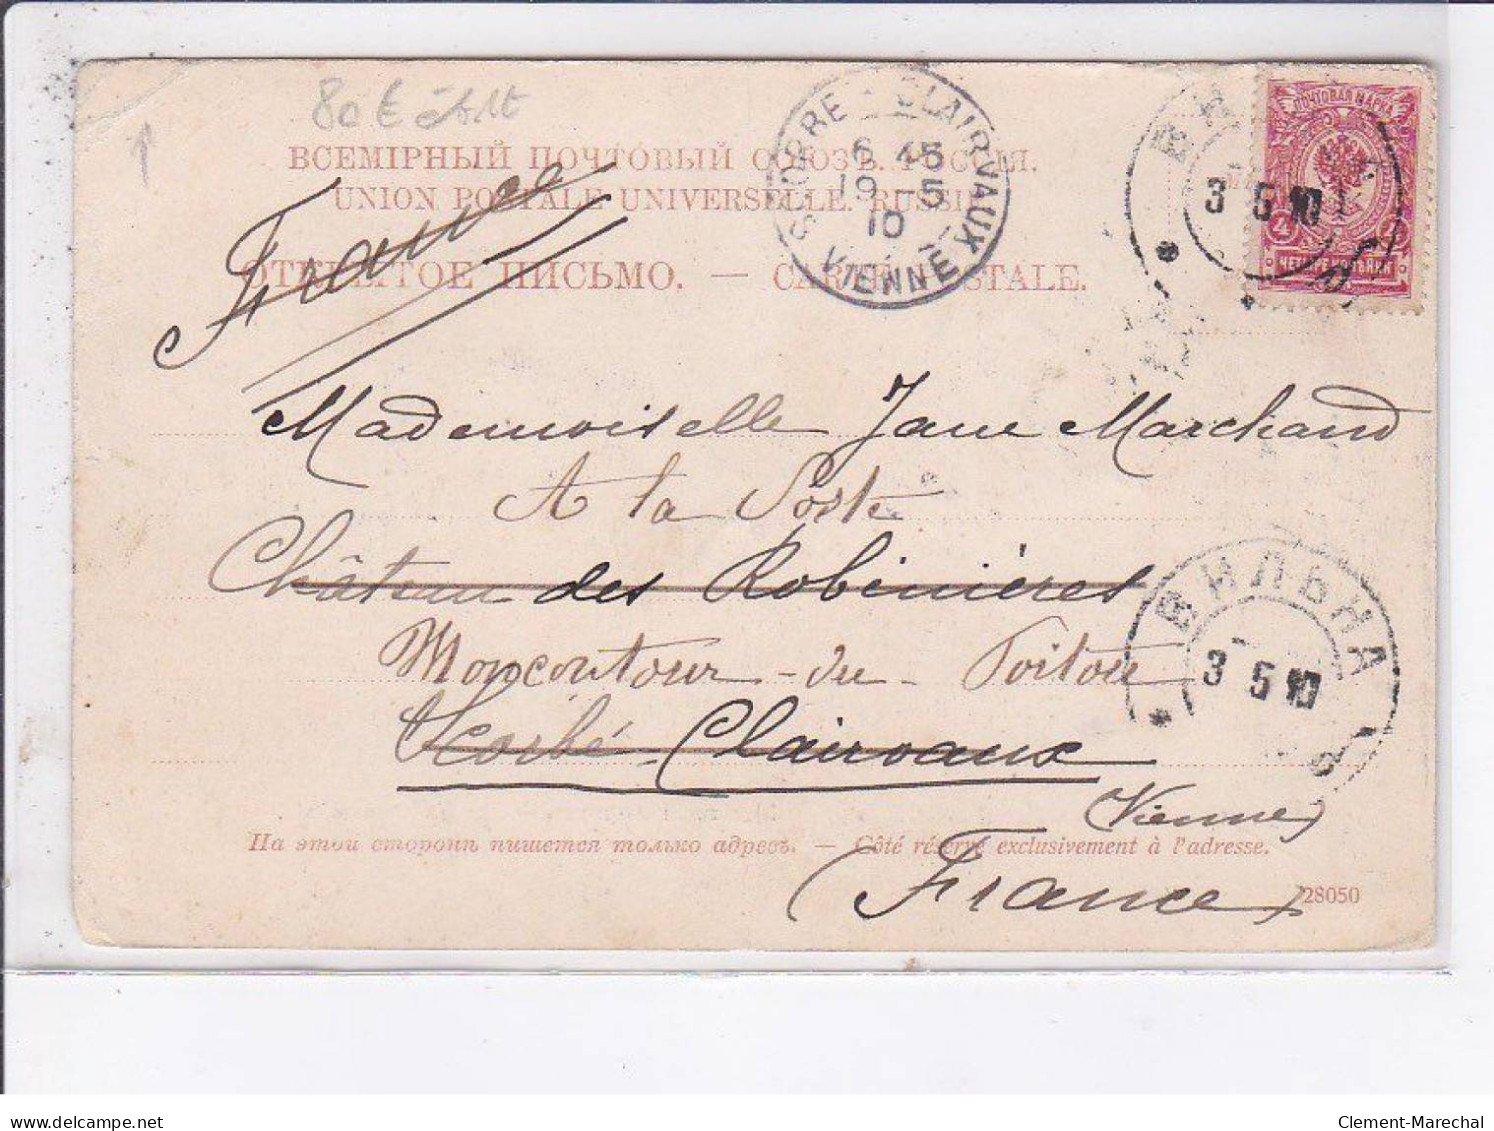 80 € état
ВСЕМІРНЫЙ ПОЧТОВЫЙ СОЮЗЪ. РОССІЯ.
UNION POSTALE UNIVERSELLE. RUSSIE
France
ОТКРЫТОЕ ПИСЬМО. — CARTE POSTALE.
SCORBE-CLAIRVAUX
6 45
19-5
10
VIENNE
ПОЧТОВАЯ МАРКА
4
ЧЕТЫРЕ КОПѢЙКИ
3 5 10
Mademoiselle Jane Marchand
A la Poste
Château des Robinières
Moncontour-du-Poitou
Scorbé-Clairvaux
(Vienne)
(France)
ВИЛЬНА
3 5 10
На этой сторонѣ пишется только адресъ. — Côté réservé exclusivement à l'adresse.
28050
delcampe.net
Clement-Marechal